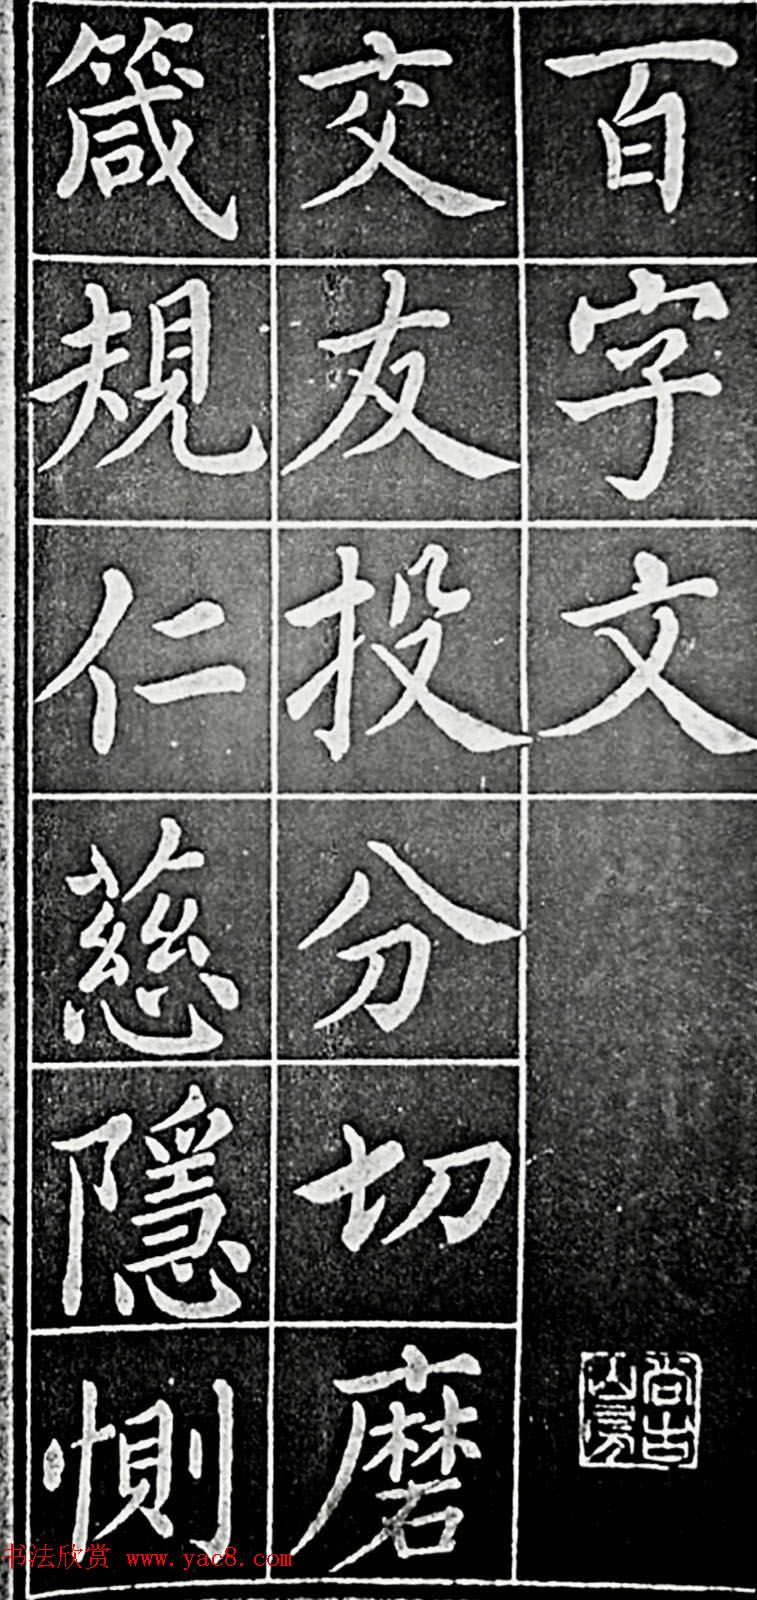 百字文
交友投分切磨
箴規仁慈隱惻
尚古山房
书法欣赏 www.yac8.com